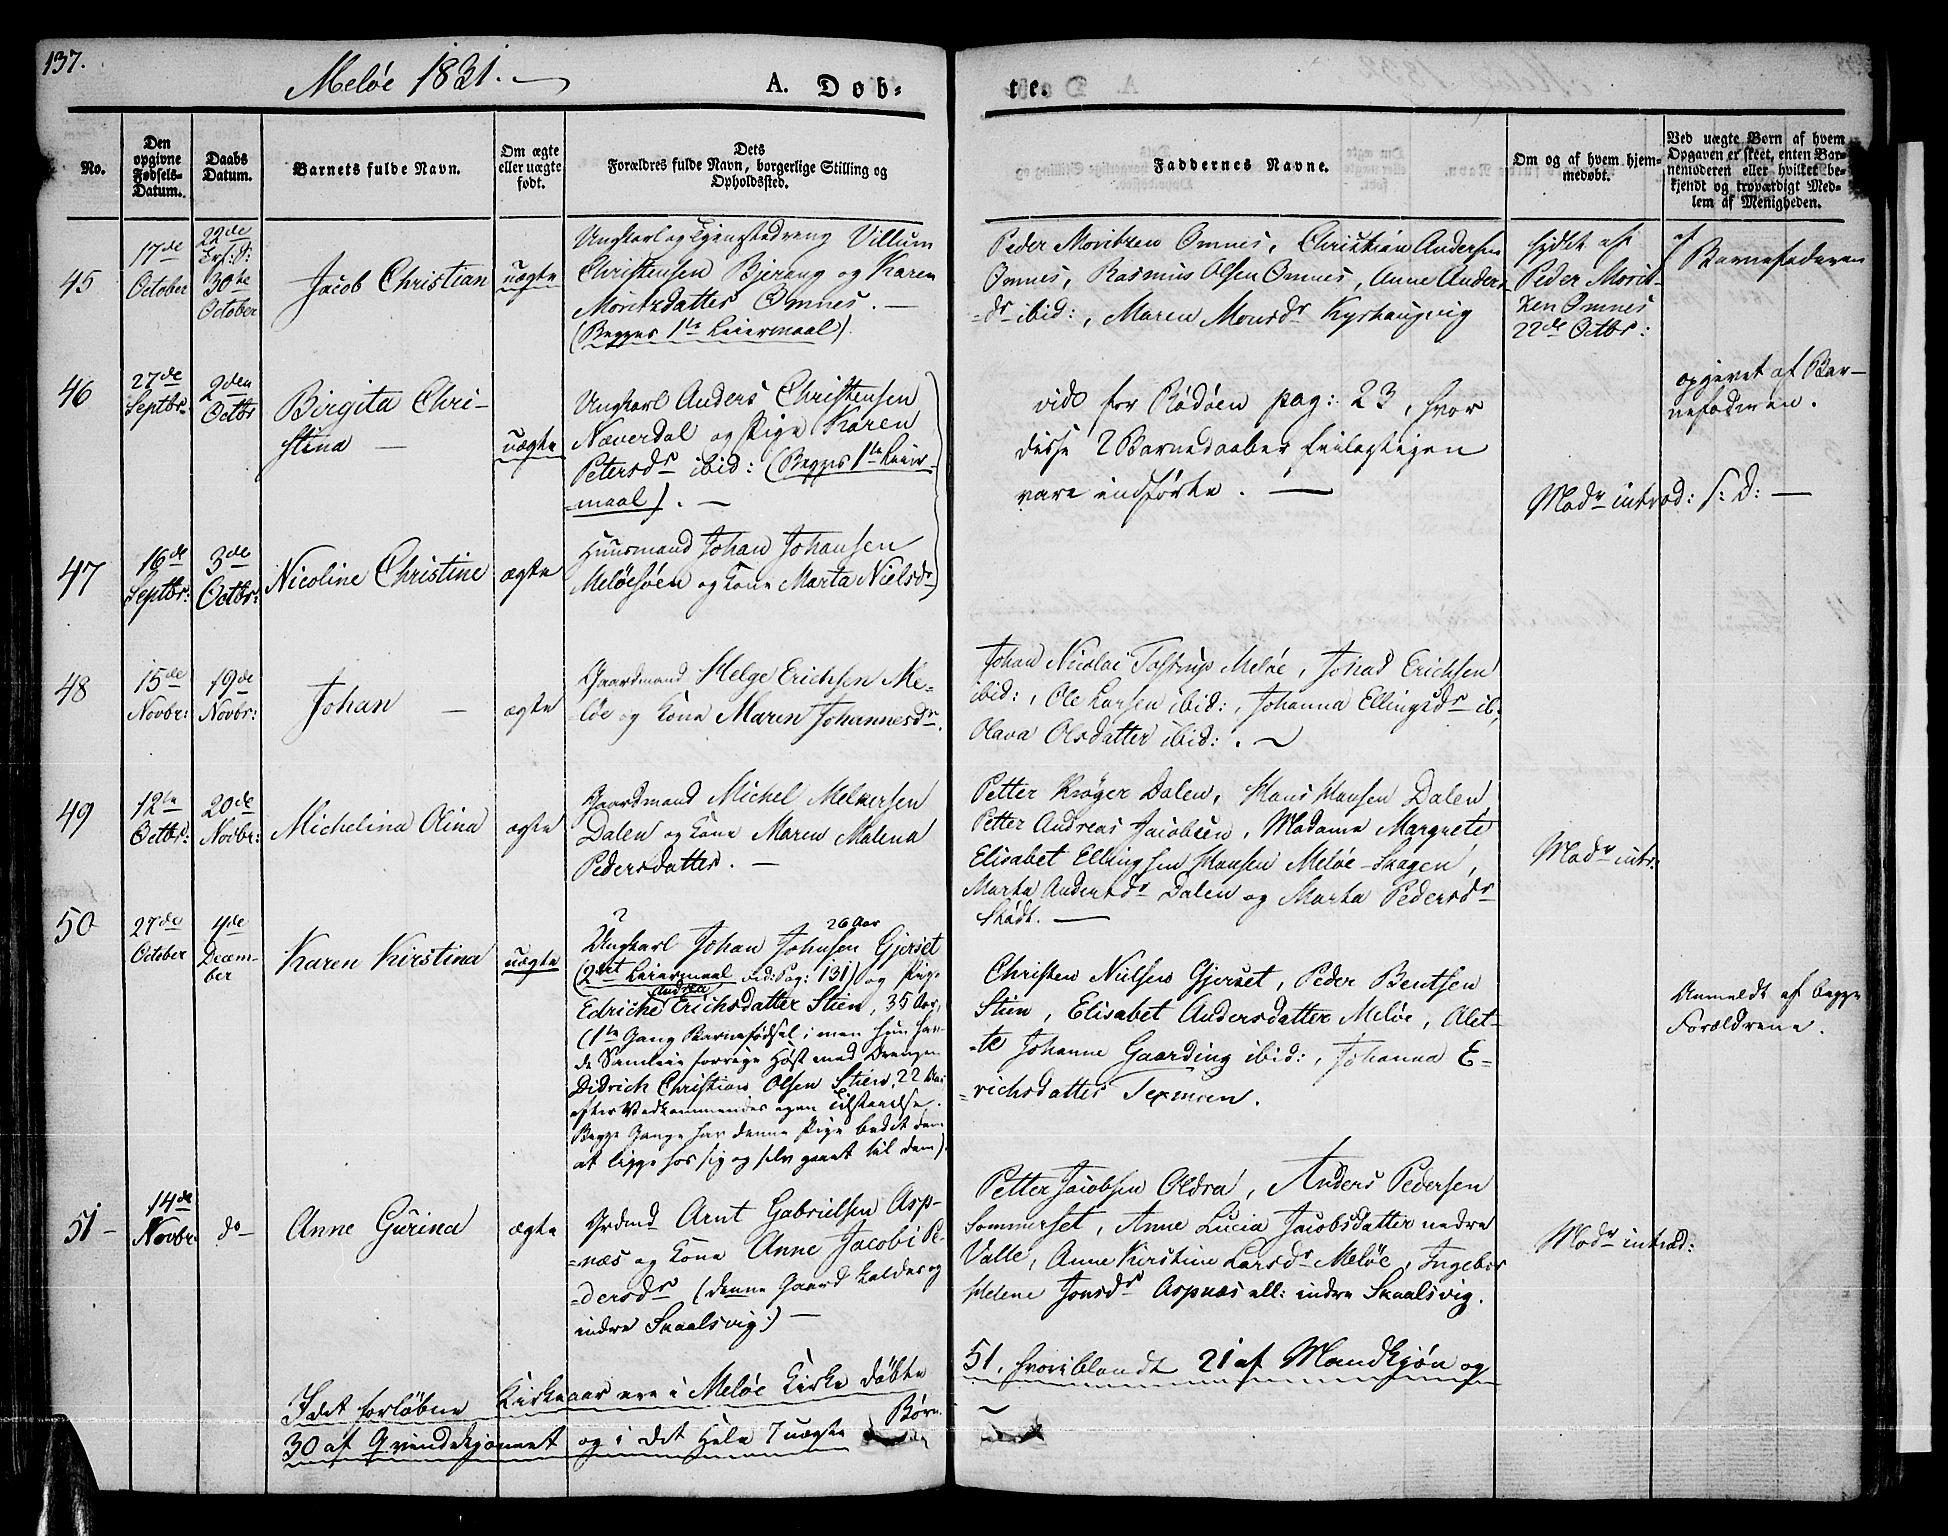 137.
Meløe 1831.
A. Dob-
te.
No.
Den opgivne Fødsels-Datum.
Daabs Datum.
Barnets fulde Navn.
Om ægte eller uægte født.
Dets Forældres fulde Navn, borgerlige Stilling og Opholdssted.
Faddernes Navne.
Om og af hvem hjem-medøbt.
Ved uægte Børn af hvem Opgaven er skeet, enten Bar-nemoderen eller hvilket be-kjendt og troværdigt Med-lem af Menigheden.
45
17de
October
22de
30te
October
Jacob Christian
uægte
Ungkarl og Tjenestedreng Villum
Christensen Bjerang og Karen
Moritzdatter Omnes. —
(Begges 1te Leiermaal).
Peder Moritzen Omnes, Christian Andersen
Omnes, Rasmus Olsen Omnes, Anne Anders-
=dr ibid:, Maren Monsdr
Peder Morit-
zen Omnes
22de Octbr:
af
Barnefaderen
46
27de
Septbr.
2den
Octbr
Birgita Chri-
stina —
uægte
Ungkarl Anders Christensen
Næverdal og Pige Karen
Petersdr ibid: (Begges 1te Leier-
=maal). —
vide for Rødøen pag: 23, hvor
disse 2 Barnedaaber feilagtigen
vare indførte. —
opgivet af Bar-
nefaderen.
47
16de
Septbr:
3de
Octbr:
Nicoline Christine
ægte
Huusmand Johan Johansen
Meløesøen og Kone Marta Nielsdr
Modr introd: s: D: —
48
15de
Novbr:
19de
Novbr:
Johan —
ægte
Gaardmand Helge Erichsen Me-
=løe og Kone Maren Johannesdr.
Johan Nicolai Tostrup Meløe, Johad Erichsen
ibid:, Ole Larsen ibid:, Johanna Ellingsdr ib:
Olava Olsdatter ibid:.
49
12te
Octbr:
20de
Novbr:
Michelina Oina
ægte
Gaardmand Michel Melkersen
Dalen og Kone Maren Malena
Pedersdatter. —
Petter Krøger Dalen, Hans Hansen Dalen,
Petter Andreas Jacobsen, Madame Margrete
Elisabet Ellingsen Hansen Meløe-Skagen,
Marta Andersdr Dalen og Marta Pedersdr
Skådt. —
Modr intr:
50
27de
October
4de
Decem-
ber
Karen Kirstina
uægte
?
26 Aar
Ungkarl Johan Johnsen Gjerset
(2det Leiermaal vid: Pag: 131) og Pige
Andrea
Edriche Erichsdatter Stien, 35 Aar,
(1te Gang Barnefødsel; men hun hav-
de Samleie forrige Høst med Drengen
Didrich Christian Olsen Stien, 22 Aar
efter Vedkommendes egen Tilstaaelse.
Begge Gange har denne Pige bedet dem
at ligge hos sig og selv gaaet til dem).
Christen Nielsen Gjerset, Peder Bentsen
Stien, Elisabet Andersdatter Meløe, Alet-
=te Johanne Gaarding ibid:, Johanna E-
=richsdatter Texmoen.
Anmeldt af begge
Forældrene.
51
14de
Novbr.
do
Anne Gurina
ægte
Grdmd Arnt Gabrielsen Asp-
=næs og Kone Anne Jacobi Pe-
=dersdr (denne Gaard kaldes og
indre Skaalsvig:) —
Petter Jacobsen Oldra, Anders Pedersen
Sommerset, Anne Lucia Jacobsdatter nedre
Valle, Anne Kirstine Larsdr Meløe, Ingebor
Helene Jonsdr Aspnæs ell: indre Skaalsvig.
Modr introd:
I det forløbne Kirkeaar ere i Meløe Kirke døbte 51, hvoriblandt 21 af Mandkjøn og
30 af Qvindekjønnet og i det Hele 7 uægte Børn.